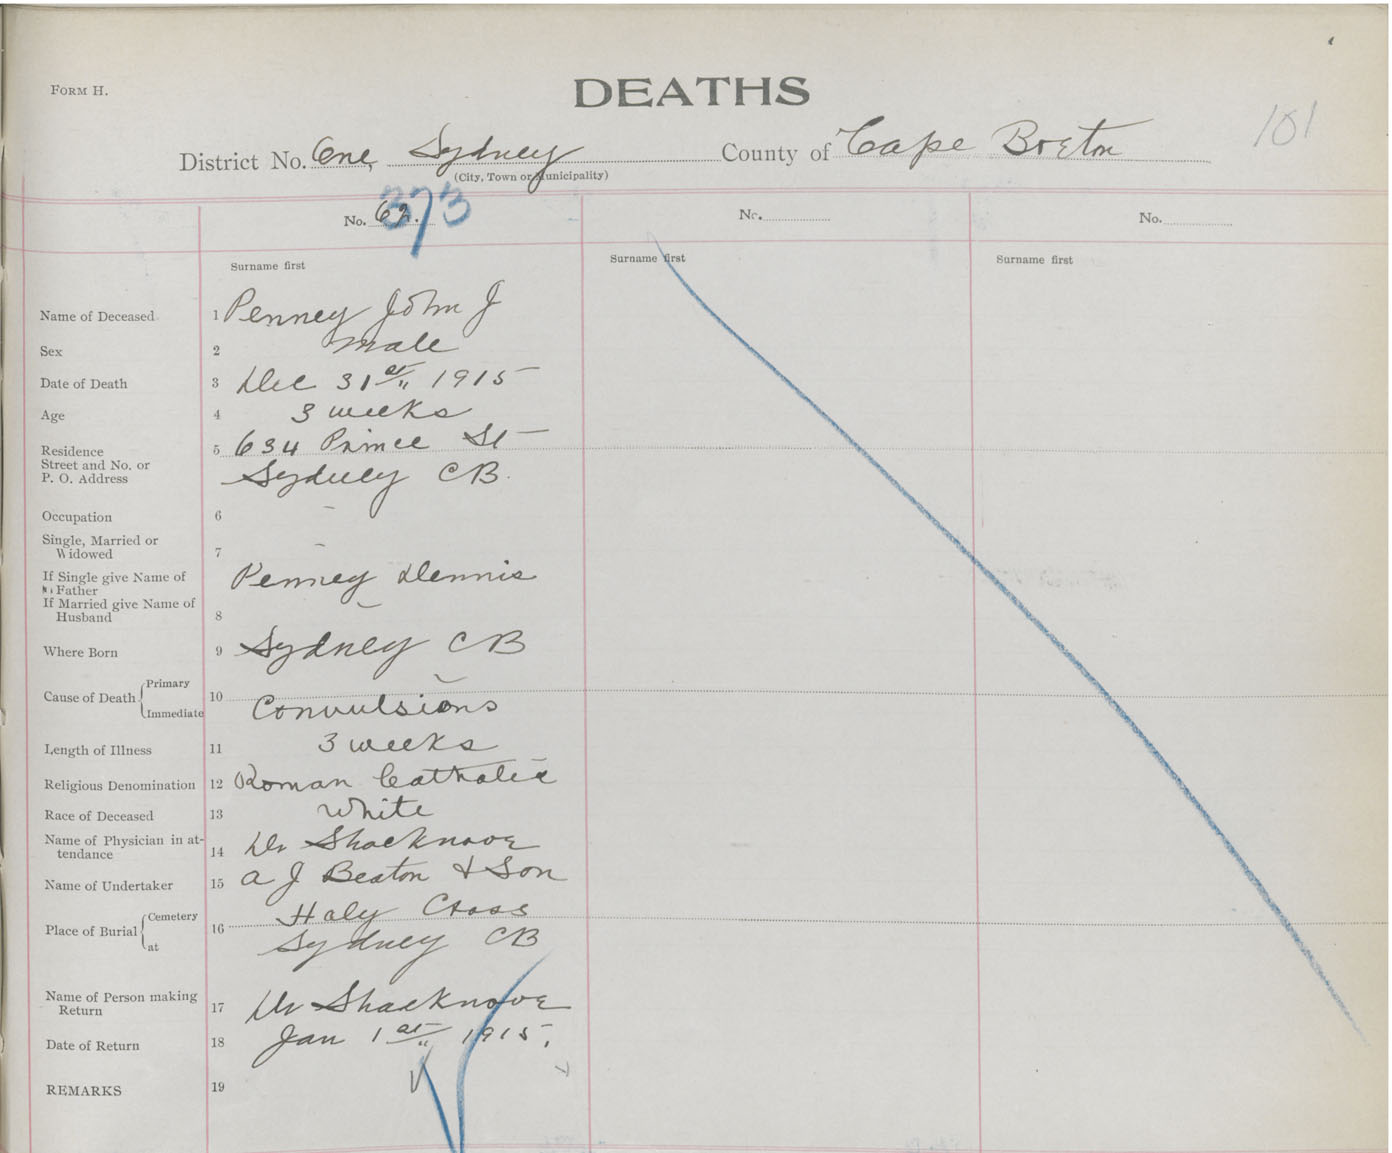 FORM H.
DEATHS
101
District No. One, Sydney County of Cape Breton
(City, Town or Municipality)
No. 62. 373
No.
No.
Surname first
Surname first
Surname first
Name of Deceased 1 Penney John J
Sex 2 Male
Date of Death 3 Dec 31st 1915
Age 4 3 weeks
Residence 5 634 Prince St
Street and No. or
P. O. Address Sydney CB.
Occupation 6 -
Single, Married or
Widowed 7 -
If Single give Name of
Father Penney Dennis
If Married give Name of
Husband 8 -
Where Born 9 Sydney CB
Cause of Death { Primary 10 -
Immediate Convulsions
Length of Illness 11 3 weeks
Religious Denomination 12 Roman Catholic
Race of Deceased 13 White
Name of Physician in at-
tendance 14 Dr Shacknove
Name of Undertaker 15 A J Beaton & Son
Place of Burial { Cemetery 16 Holy Cross
at Sydney CB
Name of Person making
Return 17 Dr Shacknove
Date of Return 18 Jan 1st 1915.
REMARKS 19